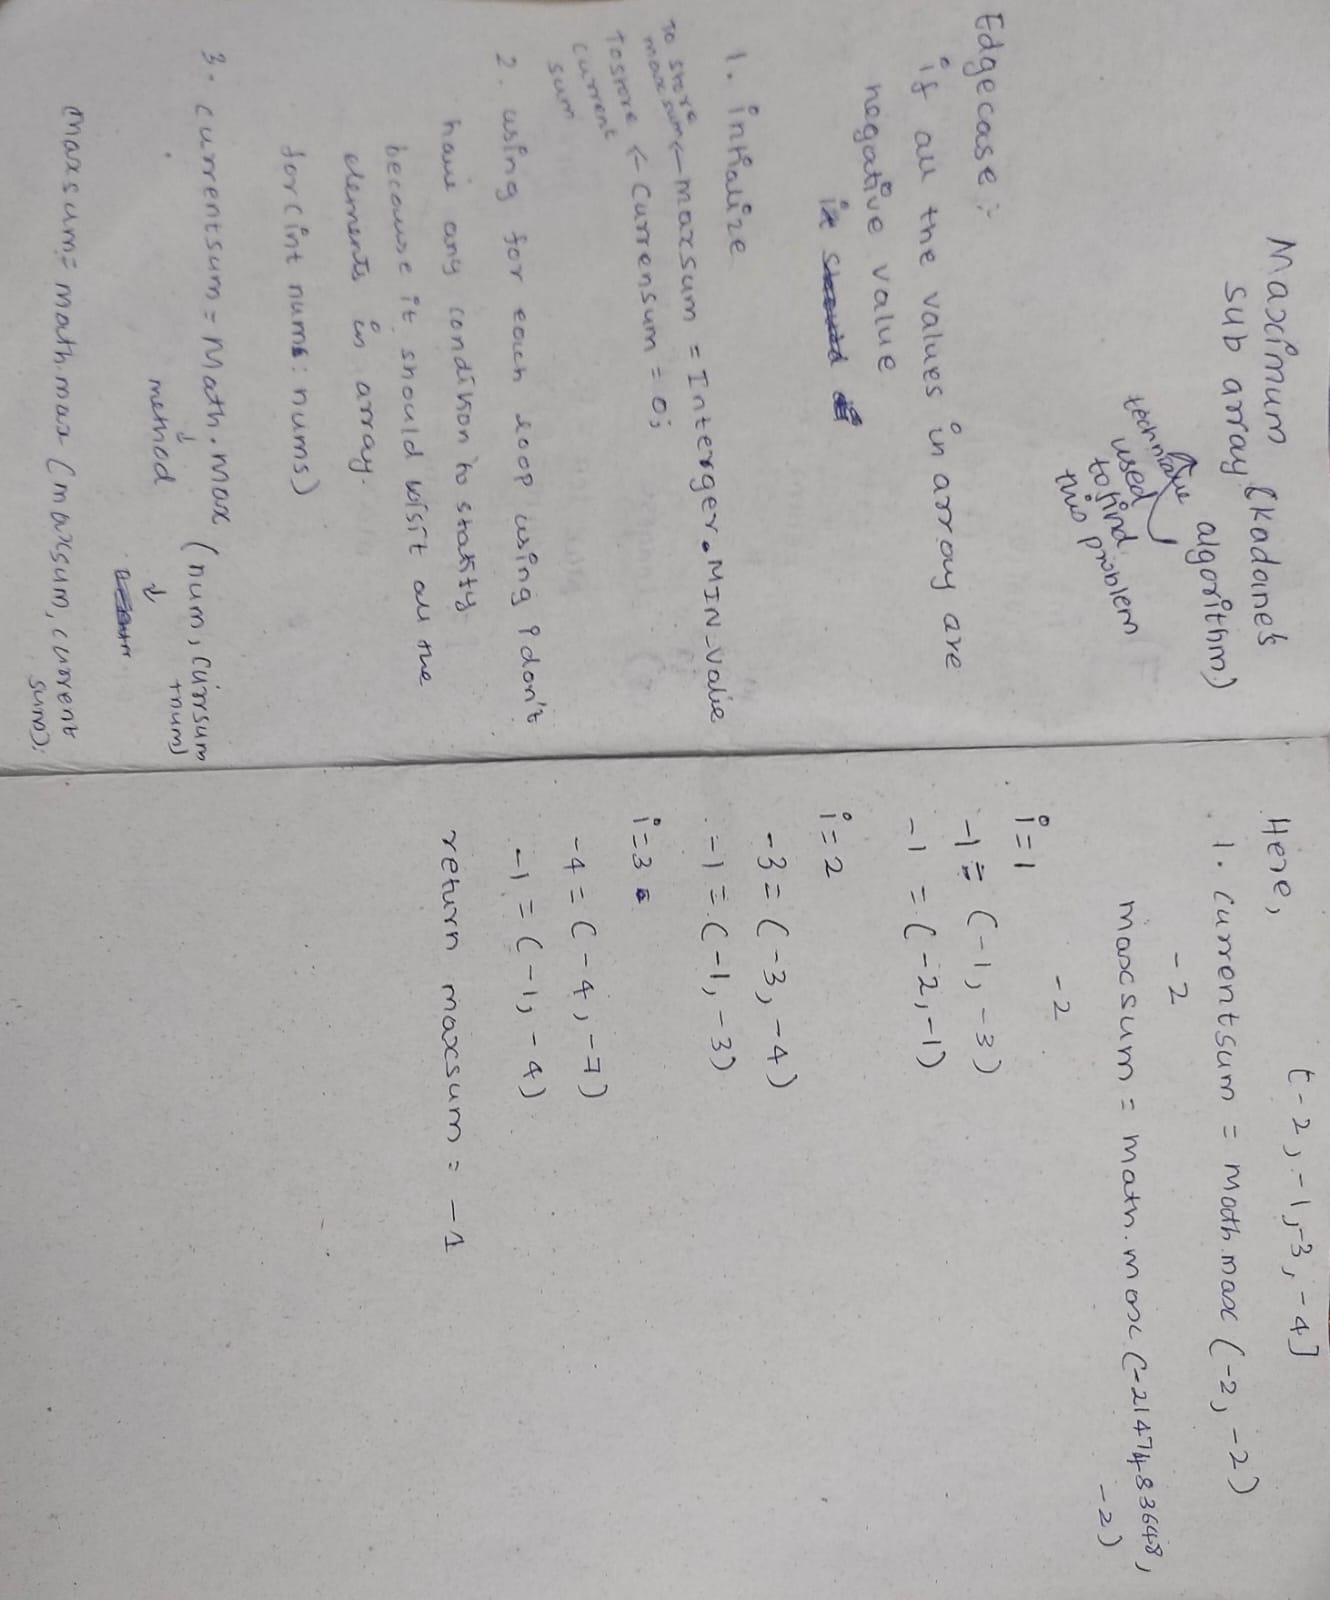 Maximum
sub array (Kadane's
algorithm)
technique
used
to find
this problem
Edgecase :-
if all the values in array are
negative value
1. intialize
To store
max sum ← maxsum = Interger.MIN_Valie
To store ← Currensum = 0;
current
sum
2. using for each loop using i don't
have any condition to statity
because it should visit all the
elements in array.
for(int nums: nums)
3. currentsum = Math.max (num, currsum
+num)
↓
method
↓
maxsum = math.max (maxsum, current
sum);
[-2, -1, -3, -4]
Here,
1. currentsum = math.max (-2, -2)
-2
maxsum = math.max (-2147483648,
-2)
-2
i=1
-1 = (-1, -3)
-1 = (-2, -1)
i=2
-3 = (-3, -4)
-1 = (-1, -3)
i=3
-4 = (-4, -7)
-1 = (-1, -4)
return maxsum = -1